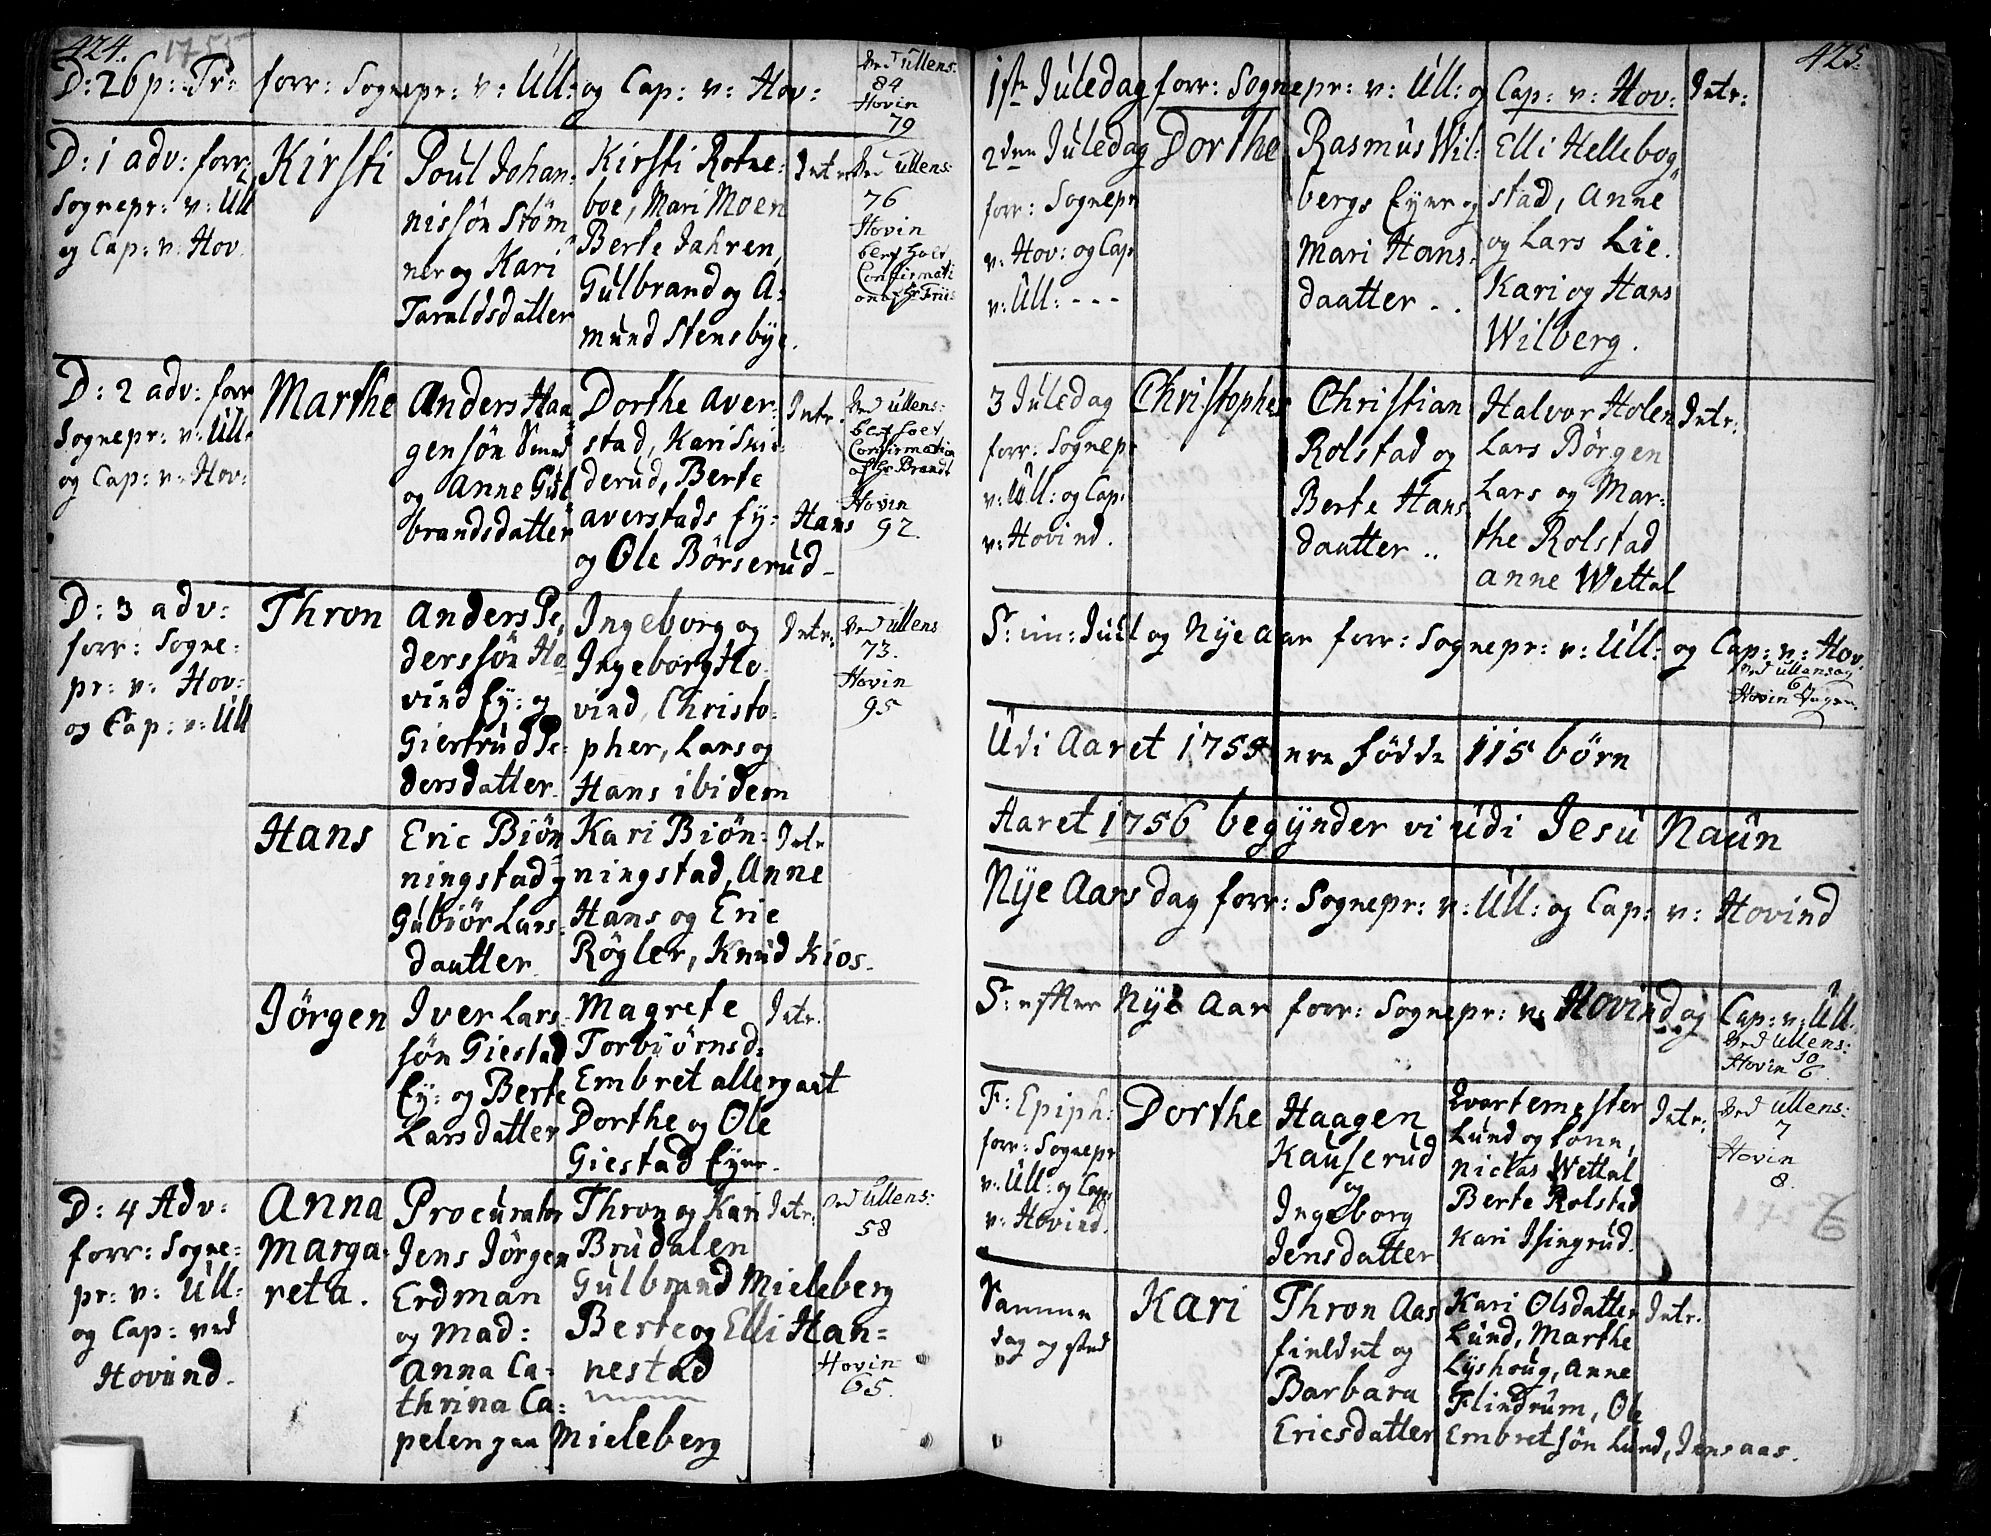 424. 1755
D: 26 p: Tr: forr: Sognepr: v: Ull: og Cap: v: Hov:
Ved Ullens:
84
Hovin
79
D: 1 adv: forr:
Sognepr: v: Ull
og Cap: v: Hov.
Kirsti
Poul Johan-
nissøn Støm
ner og Kari
Taraldsdatter
Kirsti Rotne-
boe, Mari Moen
Berte Jahren,
Gulbrand og A-
mund Stensbye.
Intr
Ved Ullens:
76
Hovin
blef holt
Confirmati
on af Hr Friis
D: 2 adv: forr
Sognepr: v: Ull:
og Cap: v: Hov:
Marthe
Anders Haa
gensøn Smed
og Anne Gul
brandsdatter
Dorthe Aver-
stad, Kari Smi-
derud, Berte
Averstads Ey: Hans
og Ole Børserud
Intr.
Ved Ullens:
blef holt
Confirmation
af Hr Brandt
Hovin
92.
D: 3 adv:
forr: Sogne-
pr: v: Hov:
og Cap: v: Ull
Thron
Anders Pe,
derssøn Ho
vind Ey: og
Giertrud Pe-
dersdatter.
Ingeborg og
Ingeborg Ho-
vind, Christo-
pher, Lars og
Hans ibidem
Intr:
Ved Ullens
73.
Hovin
95
Hans
Eric Biøn
ningstad og
Gubiør Lars-
daatter.
Kari Biøn-
ningstad, Anne
Hans og Eric
Røgler, Knud Kios.
Intr
Jørgen
Iver Lars-
søn Giestad
Ey: og Berte
Larsdatter
Magrete
Torbiørnsd:
Embret allergaat
Dorthe og Ole
Giestad Eyer.
Intr.
D: 4 Adv:
forr: Sogne-
pr: v: Ull:
og Cap: ved
Hovind.
Anna
Marga-
reta.
Procurator
Jens Jørgen
Erdman
og Mad:
Anna Ca-
thrina Ca-
pelen paa Mieleberg
Thron og Kari
Brudalen
Gulbrand Mieleberg
Berte og Elli Han-
nestad
Intr:
Ved Ullens:
58
Hovin
65.
425.
1ste Juledag forr: Sognepr: v: Ull: og Cap: v: Hov: Intr:
2den Juledag
forr: Sognepr
v: Hov: og Cap
v: Ull: - - -
Dorthe
Rasmus Wil-
bergs Eyer og
Mari Hans-
daatter . .
Elli Hellebog
stad, Anne
og Lars Lie.
Kari og Hans
Wilberg.
3 Juledag
forr: Sognepr
v: Ull: og Cap:
v: Hovind.
Christopher
Christian
Rolstad og
Berte Hans
daatter ..
Halvor Holen
Lars Børgen
Lars og Mar-
the Rolstad
Anne Wettal
Intr:
S: im: Juul og Nye Aar forr: Sognepr: v: Ull: og Cap: v: Hov.
Ved Ullensag
6
Hovin Ingen.
Udi Aaret 1755 ere fødde 115 børn
Aaret 1756 begynder vi udi Jesu Naun
Nye Aars dag forr: Sognepr: v: Ull: og Cap: v: Hovind
S: efter Nye Aar forr: Sognepr: v: Hovind og Cap: v: Ull.
Ved Ullens:
10
Hovin 6.
F: Epiph:
forr: Sognepr
v: Ull: og Cap:
v: Hovind.
Dorthe
Haagen
Kauserud
og
Ingeborg
Jensdatter
Qvartemester
Lund og Kone,
Niclas Wettal
Berte Rolstad
Kari Isingrud.
Intr:
Ved Ullens:
7
Hovin
8.
Samme
dag og sted
Kari
Thron Aas
fieldet og
Barbara
Ericsdatter
Kari Olsdatter
Lund, Marthe
Lyshoug, Anne
Flindrum, Ole
Embretsøn Lund, Jens Aas.
Intr.